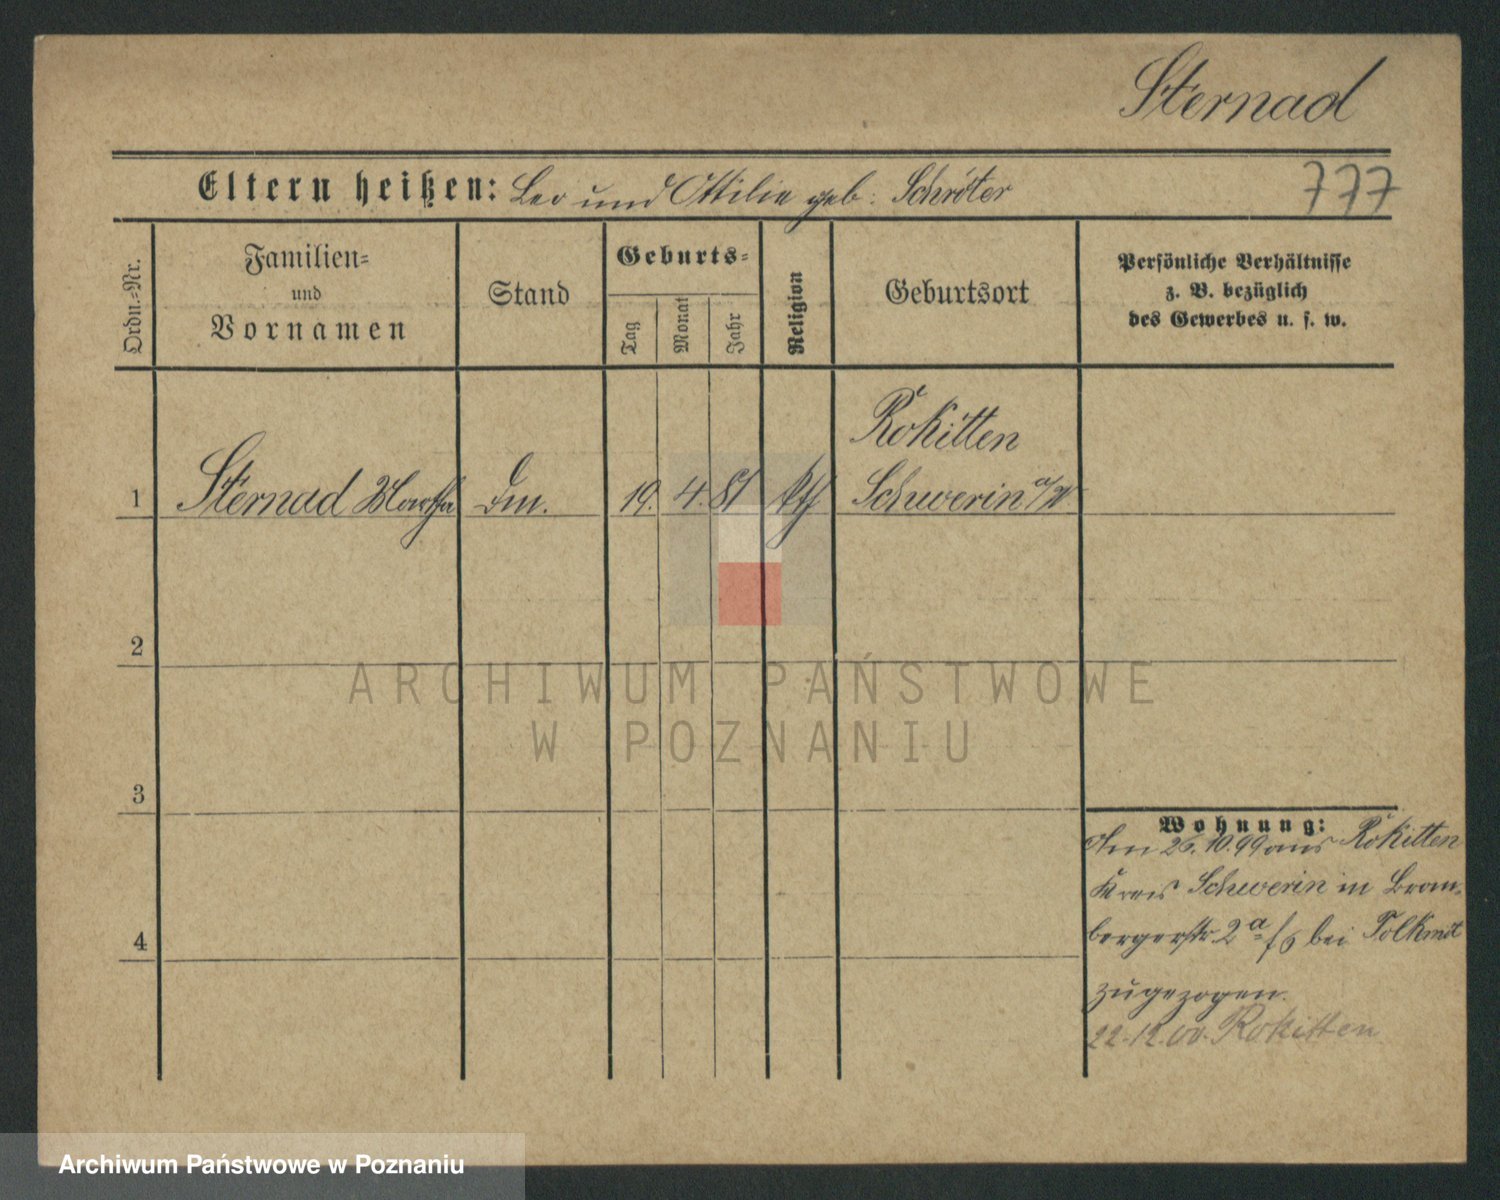 Sternad
Eltern heißen: Leo und Ottilie geb: Schröter
777
Ordn.=Nr.
Familien=
und
Vornamen
Stand
Geburts=
Tag
Monat
Jahr
Religion
Geburtsort
Persönliche Verhältnisse
z. B. bezüglich
des Gewerbes u. s. w.
Rokitten
1 Sternad Martha 19. 4. 81 kth Schwerin a/W.
2
ARCHIWUM PAŃSTWOWE
W POZNANIU
3
Wohnung:
Am 26.10.99 aus Rokitten
Kreis Schwerin in Brom-
bergerstr 2a bei Tolkmit
4
zugezogen.
22.12.00. Rokitten
Archiwum Państwowe w Poznaniu